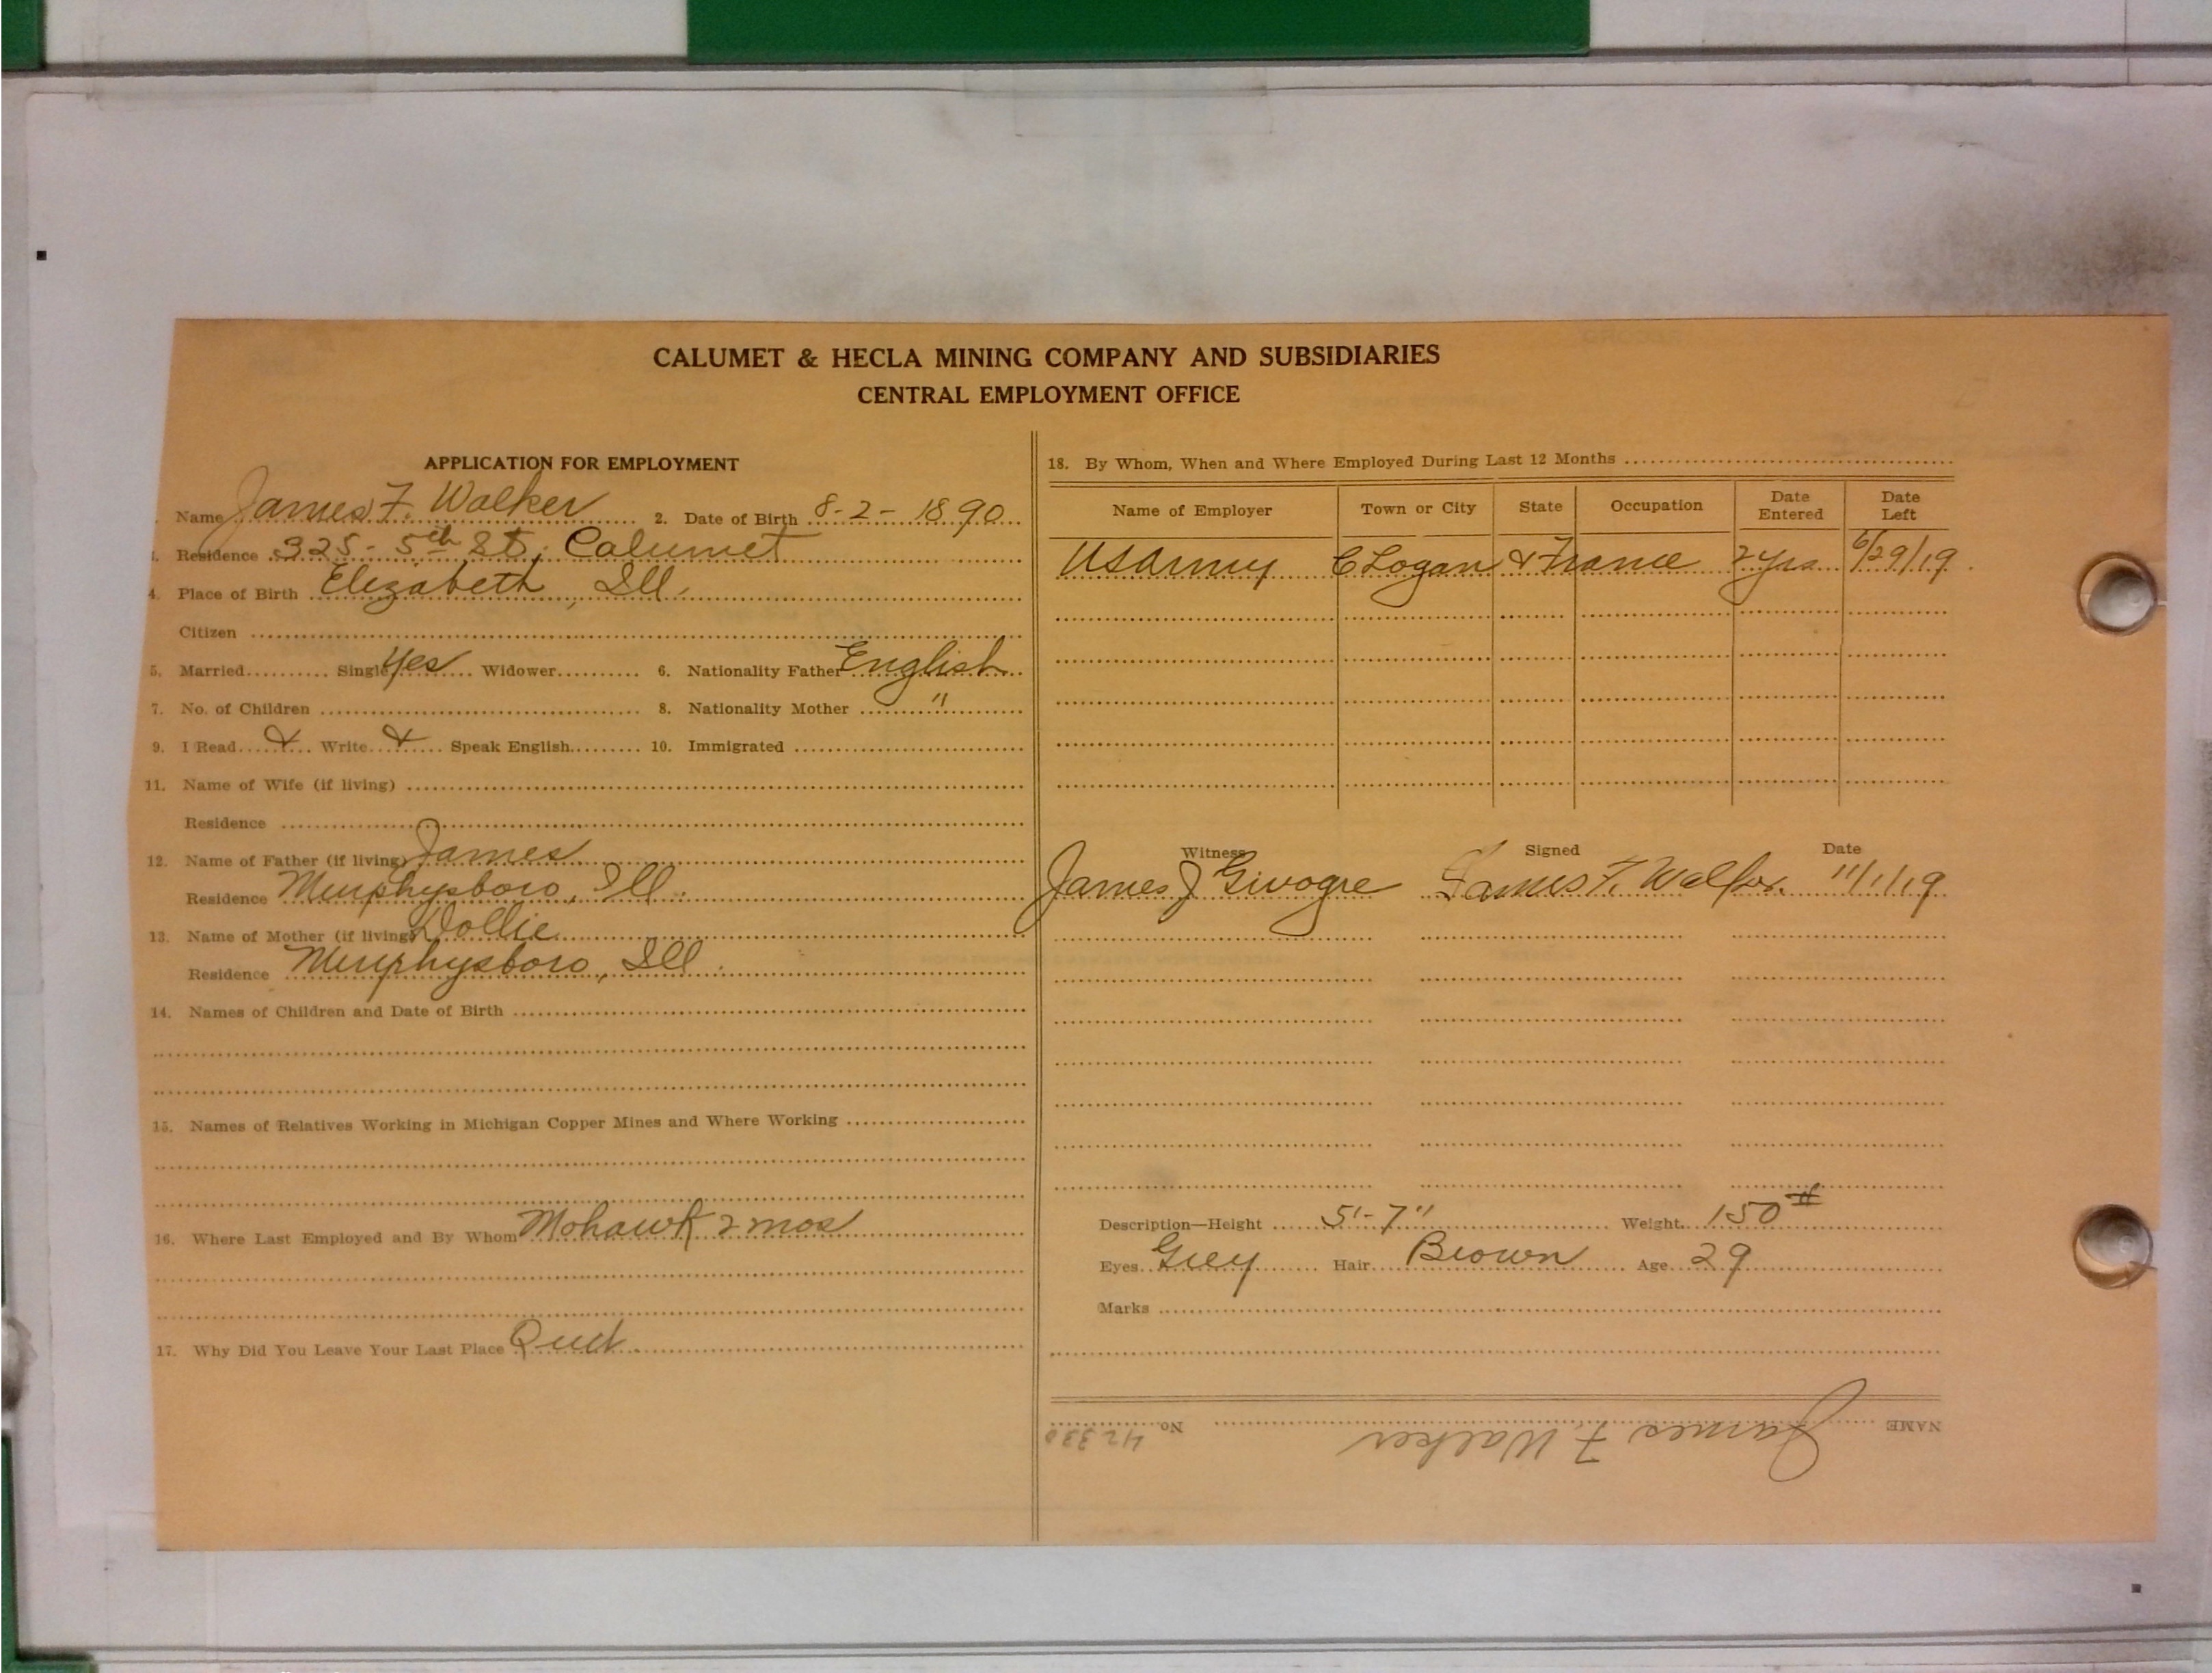 CALUMET & HECLA MINING COMPANY AND SUBSIDIARIES
CENTRAL EMPLOYMENT OFFICE
APPLICATION FOR EMPLOYMENT
Name James F. Walker 2. Date of Birth 8-2-1890
Residence 325-5th St, Calumet
4. Place of Birth Elizabeth, Ill.
Citizen
5. Married Single Yes Widower 6. Nationality Father English
7. No. of Children 8. Nationality Mother "
9. I Read & Write & Speak English 10. Immigrated
11. Name of Wife (if living)
Residence
12. Name of Father (if living) James
Residence Murphysboro, Ill.
13. Name of Mother (if living) Dollie
Residence Murphysboro, Ill.
14. Names of Children and Date of Birth
15. Names of Relatives Working in Michigan Copper Mines and Where Working
16. Where Last Employed and By Whom Mohawk 2 mos
17. Why Did You Leave Your Last Place Quit
18. By Whom, When and Where Employed During Last 12 Months
Name of Employer Town or City State Occupation Date Entered Date Left
US Army C Logan & France 2 yrs 6/29/19
Witness Signed Date
James J James F. Walker 11/1/19
Description—Height 5'-7" Weight 150#
Eyes Grey Hair Brown Age 29
Marks
NAME James F. Walker No. 42330